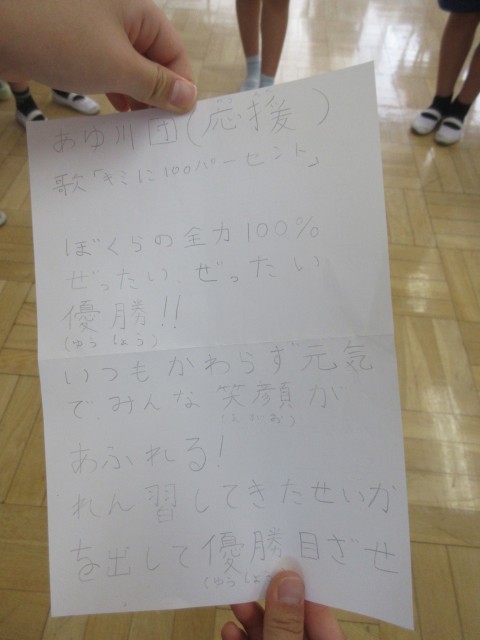 あゆ川団(応援)
歌「キミに100パーセント」
ぼくらの全力100%
ぜったい、ぜったい
優勝!!
(ゆうしょう)
いつもかわらず元気
で、みんな笑顔が
(えがお)
あふれる!
れん習してきたせいか
を出して優勝目ざせ
(ゆうしょう)